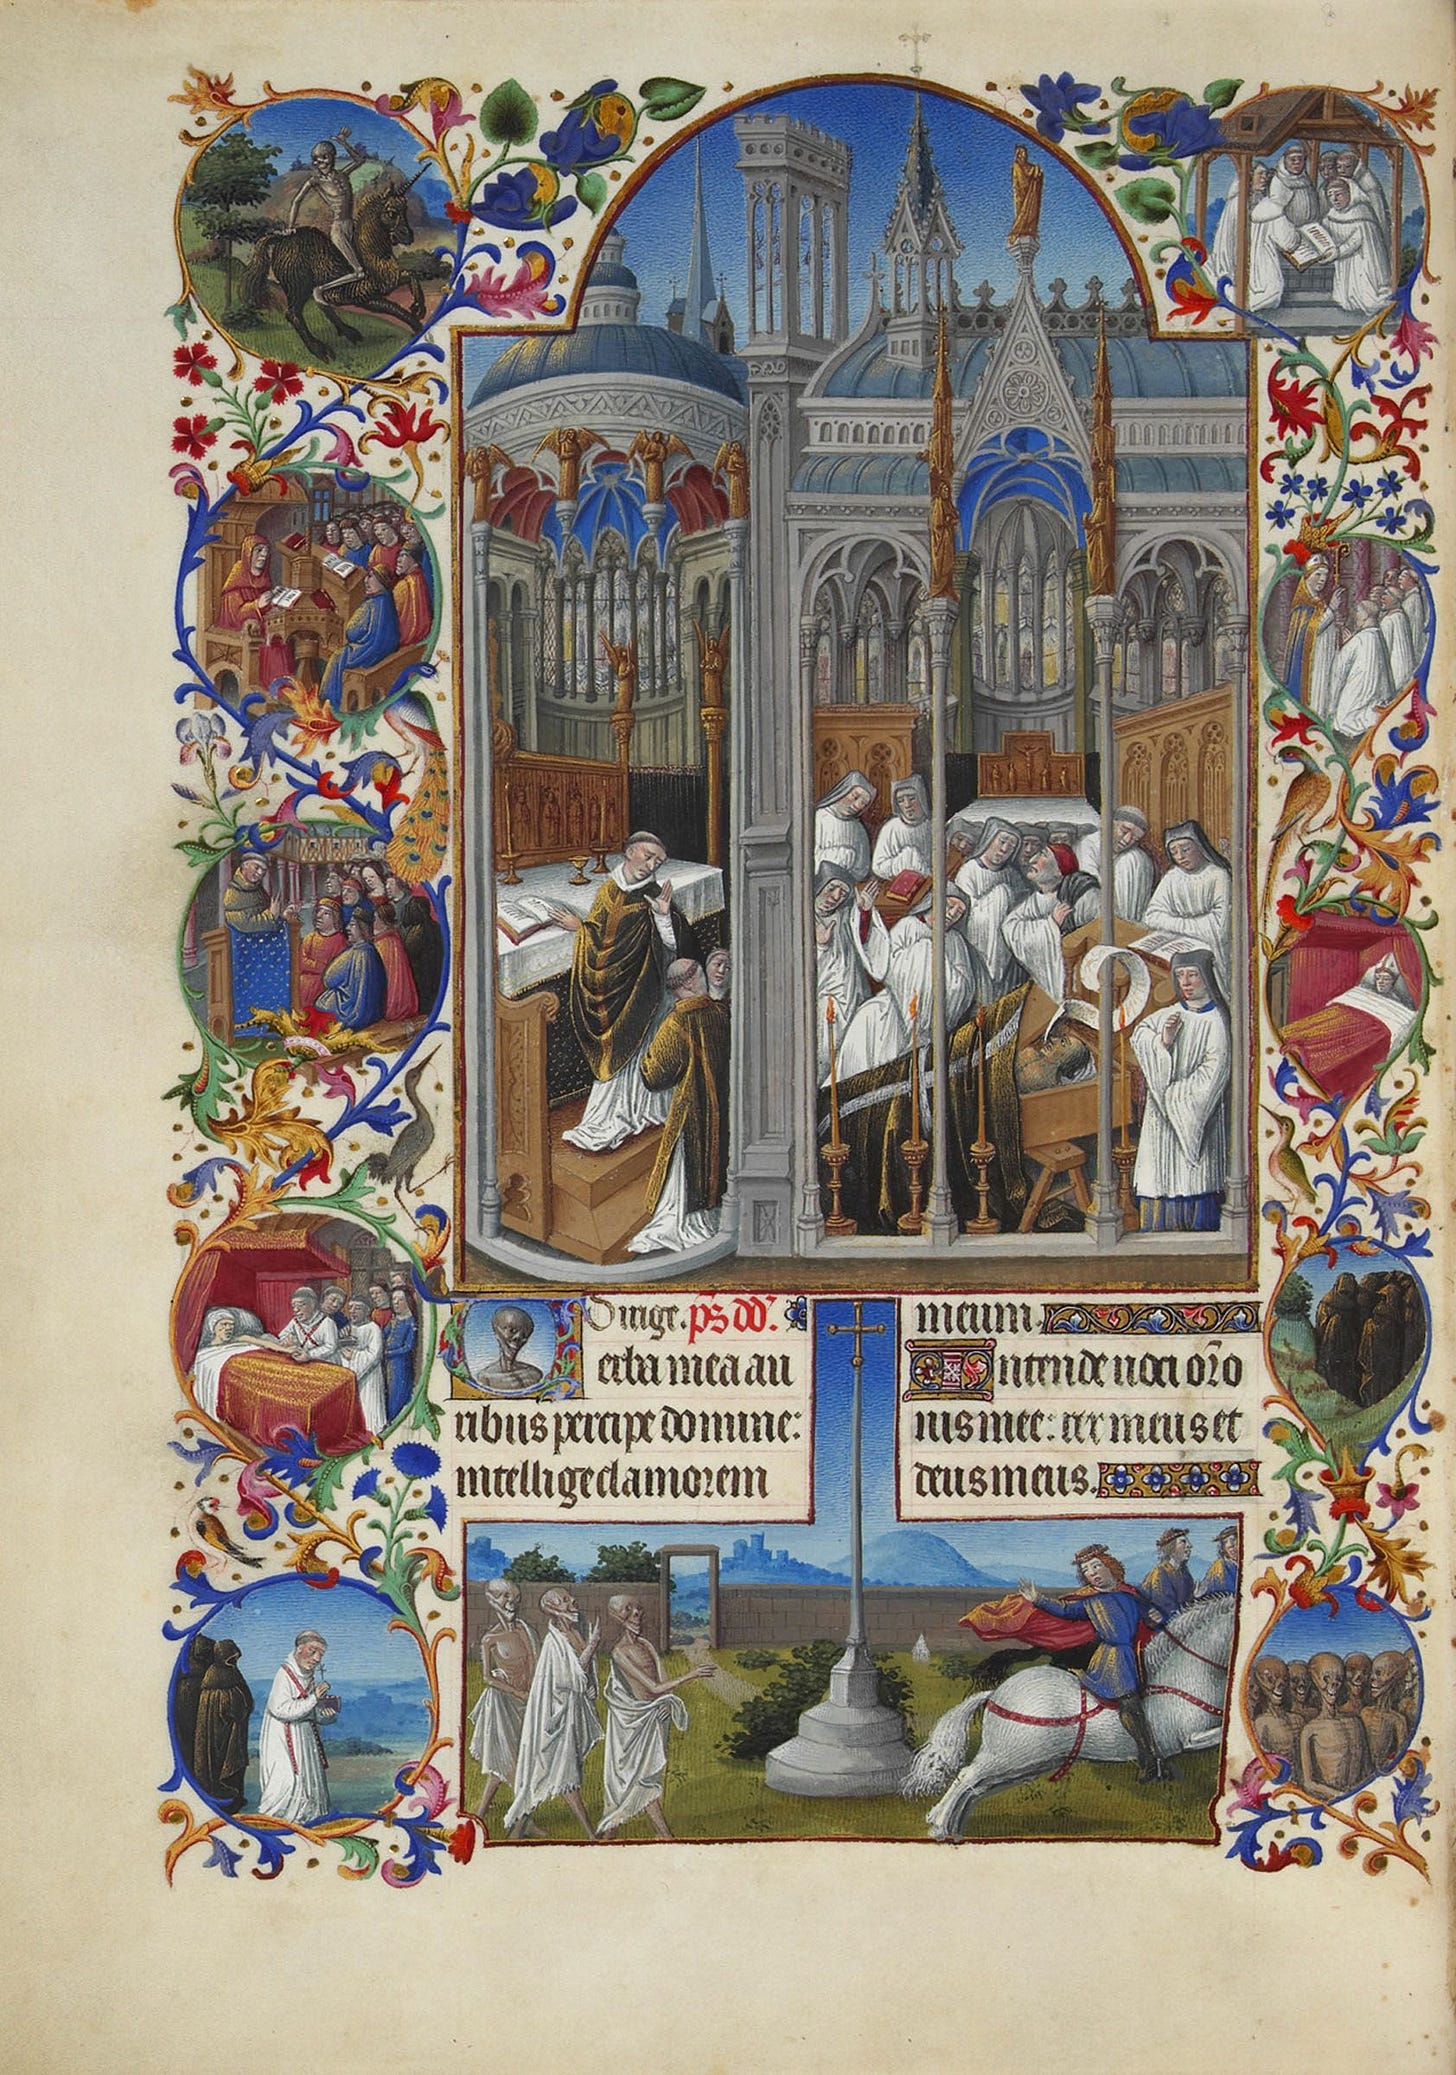 Dirige. ps̃ dd̃.
Verba mea au
ribus percipe domine:
intellige clamorem
meum.
Intende uoci orõ
nis mee: rex meus et
deus meus.